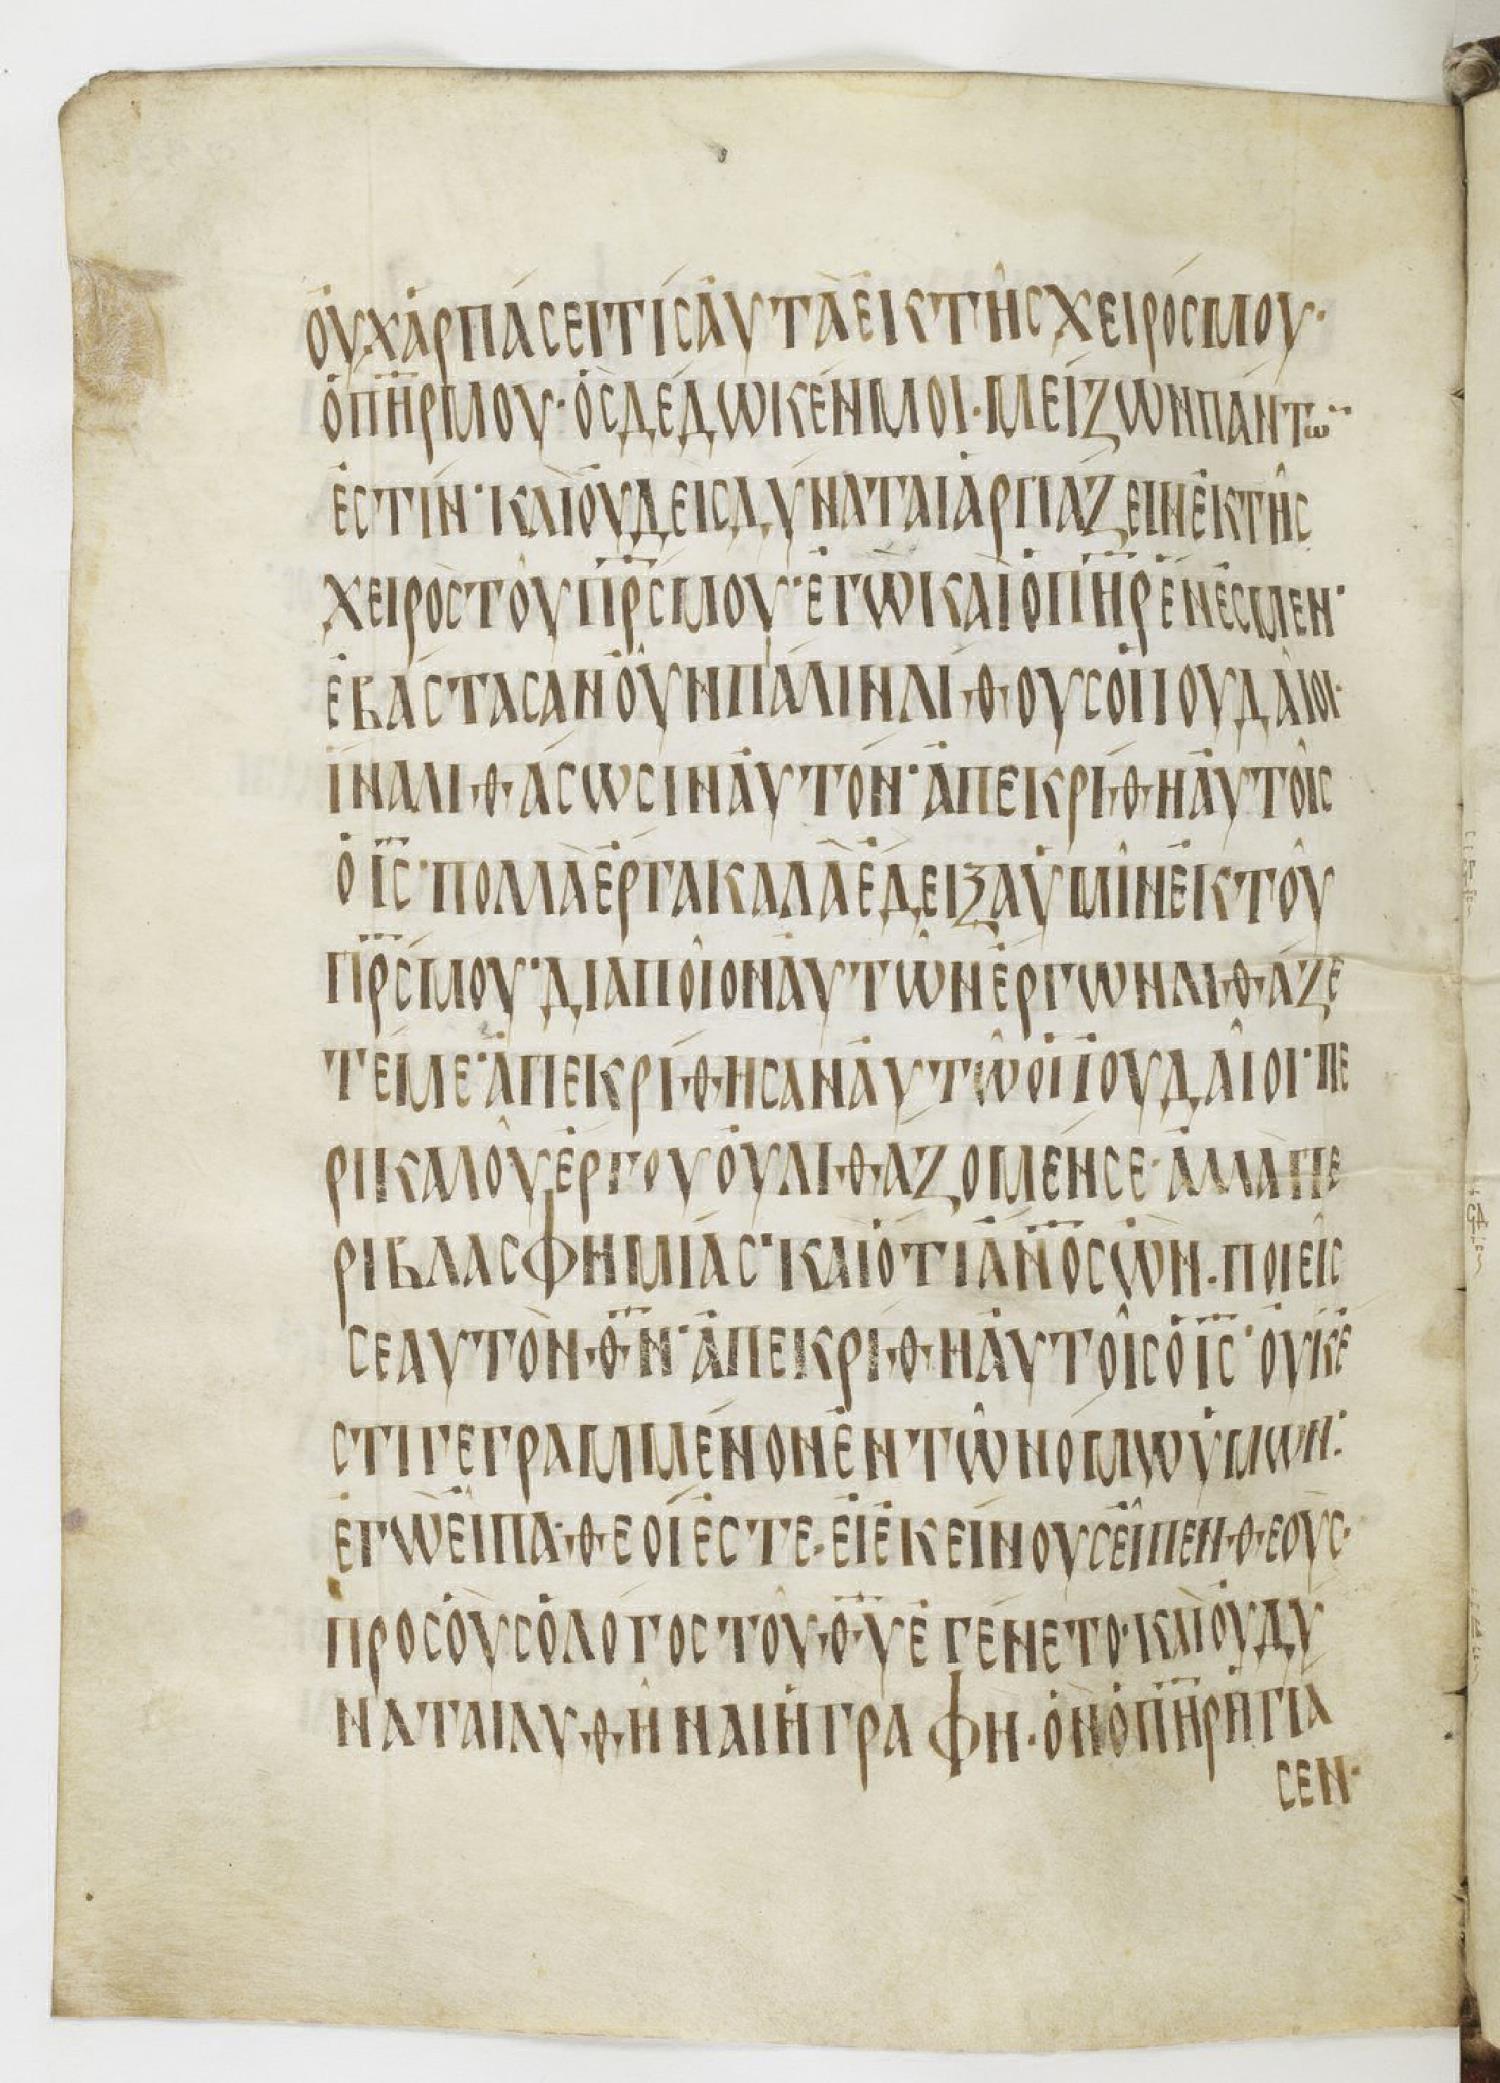 ΟΥΧΑΡΠΑΣΕΙΤΙΣΑΥΤΑΕΚΤΗΣΧΕΙΡΟΣΜΟΥ·
ΟΠΗΡΜΟΥ·ΟΣΔΕΔΩΚΕΝΜΟΙ·ΜΕΙΖΩΝΠΑΝΤΩ
ΕΣΤΙΝ·ΚΑΙΟΥΔΕΙΣΔΥΝΑΤΑΙΑΡΠΑΖΕΙΝΕΚΤΗΣ
ΧΕΙΡΟΣΤΟΥΠΡΣΜΟΥ·ΕΓΩΚΑΙΟΠΗΡΕΝΕΣΜΕΝ·
ΕΒΑΣΤΑΣΑΝΟΥΝΠΑΛΙΝΛΙΘΟΥΣΟΙΙΟΥΔΑΙΟΙ·
ΙΝΑΛΙΘΑΣΩΣΙΝΑΥΤΟΝ·ΑΠΕΚΡΙΘΗΑΥΤΟΙΣ
ΟΙΣ·ΠΟΛΛΑΕΡΓΑΚΑΛΑΕΔΕΙΞΑΥΜΙΝΕΚΤΟΥ
ΠΡΣΜΟΥ·ΔΙΑΠΟΙΟΝΑΥΤΩΝΕΡΓΩΝΛΙΘΑΖΕ
ΤΕΜΕ·ΑΠΕΚΡΙΘΗΣΑΝΑΥΤΩΟΙΙΟΥΔΑΙΟΙ·ΠΕ
ΡΙΚΑΛΟΥΕΡΓΟΥΟΥΛΙΘΑΖΟΜΕΝΣΕ·ΑΛΛΑΠΕ
ΡΙΒΛΑΣΦΗΜΙΑΣ·ΚΑΙΟΤΙΑΝΟΣΩΝ·ΠΟΙΕΙΣ
ΣΕΑΥΤΟΝΘΝ·ΑΠΕΚΡΙΘΗΑΥΤΟΙΣΟΙΣ·ΟΥΚΕ
ΣΤΙΓΕΓΡΑΜΜΕΝΟΝΕΝΤΩΝΟΜΩΥΜΩΝ:
ΕΓΩΕΙΠΑΘΕΟΙΕΣΤΕ·ΕΙΕΚΕΙΝΟΥΣΕΙΠΕΝΘΕΟΥΣ·
ΠΡΟΣΟΥΣΟΛΟΓΟΣΤΟΥΘΥΕΓΕΝΕΤΟ·ΚΑΙΟΥΔΥ
ΝΑΤΑΙΛΥΘΗΝΑΙΗΓΡΑΦΗ·ΟΝΟΠΗΡΗΓΙΑ
ΣΕΝ·